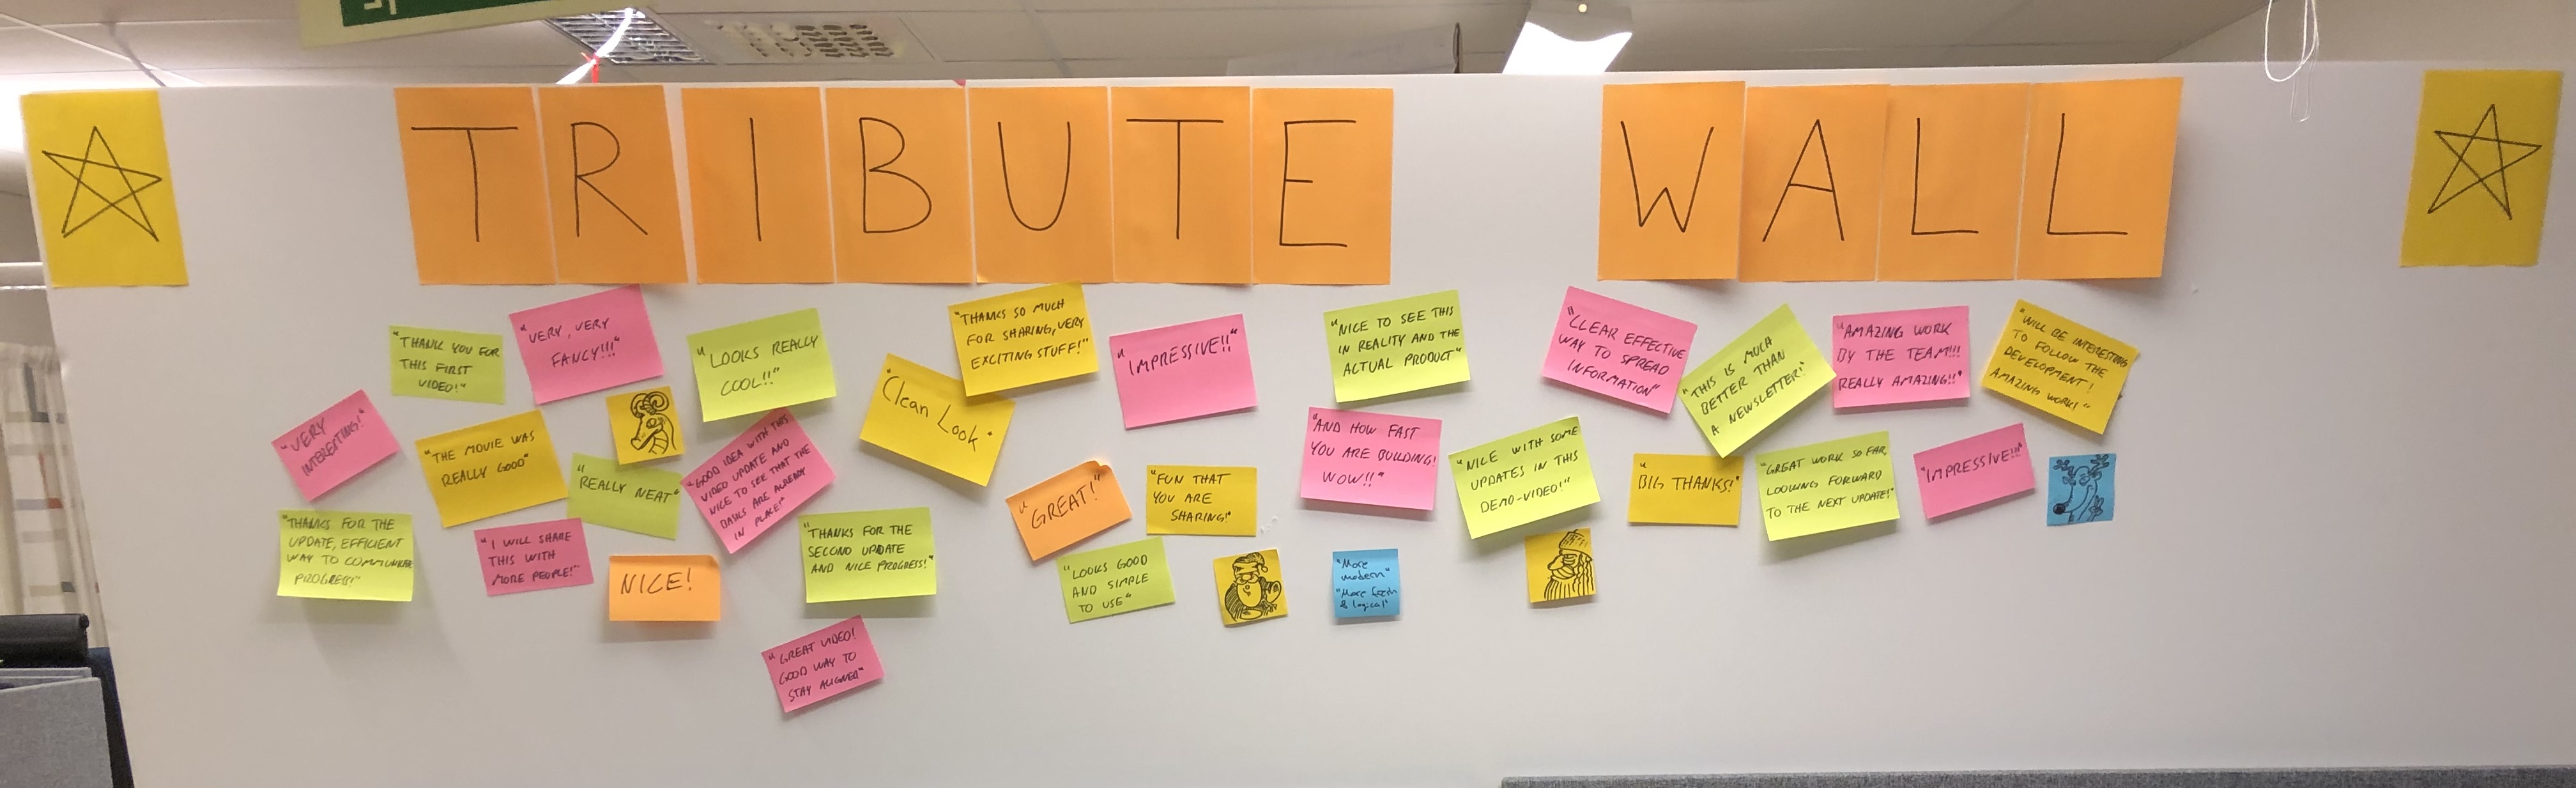 TRIBUTE WALL
"THANK YOU FOR
THIS FIRST
VIDEO!"
"VERY, VERY
FANCY!!!"
"LOOKS REALLY
COOL!!"
"THANKS SO MUCH
FOR SHARING, VERY
EXCITING STUFF!"
"IMPRESSIVE!!"
"NICE TO SEE THIS
IN REALITY AND THE
ACTUAL PRODUCT"
"CLEAR EFFECTIVE
WAY TO SPREAD
INFORMATION"
"THIS IS MUCH
BETTER THAN
A NEWSLETTER!"
"AMAZING WORK
BY THE TEAM!!!
REALLY AMAZING!!"
"WILL BE INTERESTING
TO FOLLOW THE
DEVELOPMENT!
AMAZING WORK!"
"VERY
INTERESTING!"
"THE MOVIE WAS
REALLY GOOD"
"REALLY NEAT"
"GOOD IDEA WITH THIS
VIDEO UPDATE AND
NICE TO SEE THAT THE
BASICS ARE ALREADY
IN PLACE!"
"Clean Look"
"GREAT!"
"FUN THAT
YOU ARE
SHARING!"
"AND HOW FAST
YOU ARE BUILDING!
WOW!!"
"NICE WITH SOME
UPDATES IN THIS
DEMO-VIDEO!"
"BIG THANKS!"
"GREAT WORK SO FAR,
LOOKING FORWARD
TO THE NEXT UPDATE!"
"IMPRESSIVE!!!"
"THANKS FOR THE
UPDATE, EFFICIENT
WAY TO COMMUNICATE
PROGRESS!"
"I WILL SHARE
THIS WITH
MORE PEOPLE!"
NICE!
"THANKS FOR THE
SECOND UPDATE
AND NICE PROGRESS!"
"LOOKS GOOD
AND SIMPLE
TO USE"
"More
modern"
"More fresh
& logical"
"GREAT VIDEO!
GOOD WAY TO
STAY ALIGNED"